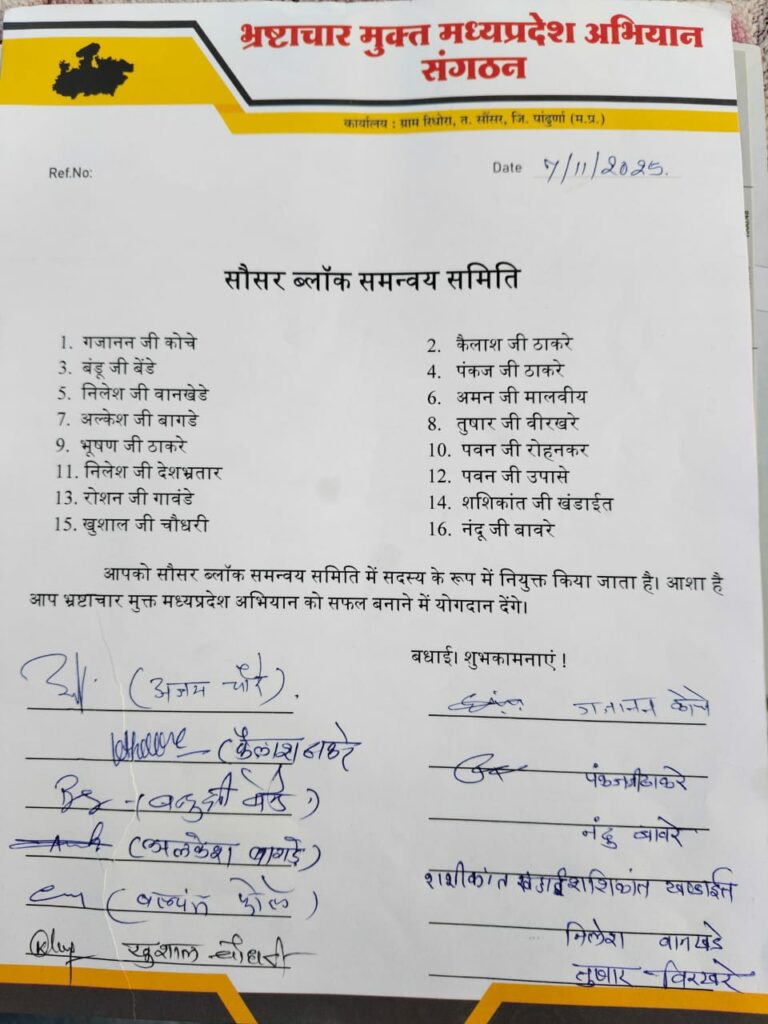 भ्रष्टाचार मुक्त मध्यप्रदेश अभियान
संगठन
कार्यालय : ग्राम रिधोरा, त. सौंसर, जि. पांढुर्णा (म.प्र.)
Ref.No:
Date 7/11/2025.
सौसर ब्लॉक समन्वय समिति
1. गजानन जी कोचे
2. कैलाश जी ठाकरे
3. बंडू जी बेंडे
4. पंकज जी ठाकरे
5. निलेश जी वानखेडे
6. अमन जी मालवीय
7. अल्केश जी बागडे
8. तुषार जी वीरखरे
9. भूषण जी ठाकरे
10. पवन जी रोहनकर
11. निलेश जी देशभ्रतार
12. पवन जी उपासे
13. रोशन जी गावंडे
14. शशिकांत जी खंडाईत
15. खुशाल जी चौधरी
16. नंदू जी बावरे
आपको सौसर ब्लॉक समन्वय समिति में सदस्य के रूप में नियुक्त किया जाता है। आशा है
आप भ्रष्टाचार मुक्त मध्यप्रदेश अभियान को सफल बनाने में योगदान देंगे।
बधाई। शुभकामनाएं !
(अजय चौरे).
गजानन कोचे
(कैलाश ठाकरे
पंकजजी ठाकरे
नंदु बावरे
(अलकेश बागडे)
शशिकांत खण्डाईत
निलेश वानखडे
खुशाल चौधरी
तुषार विरखरे